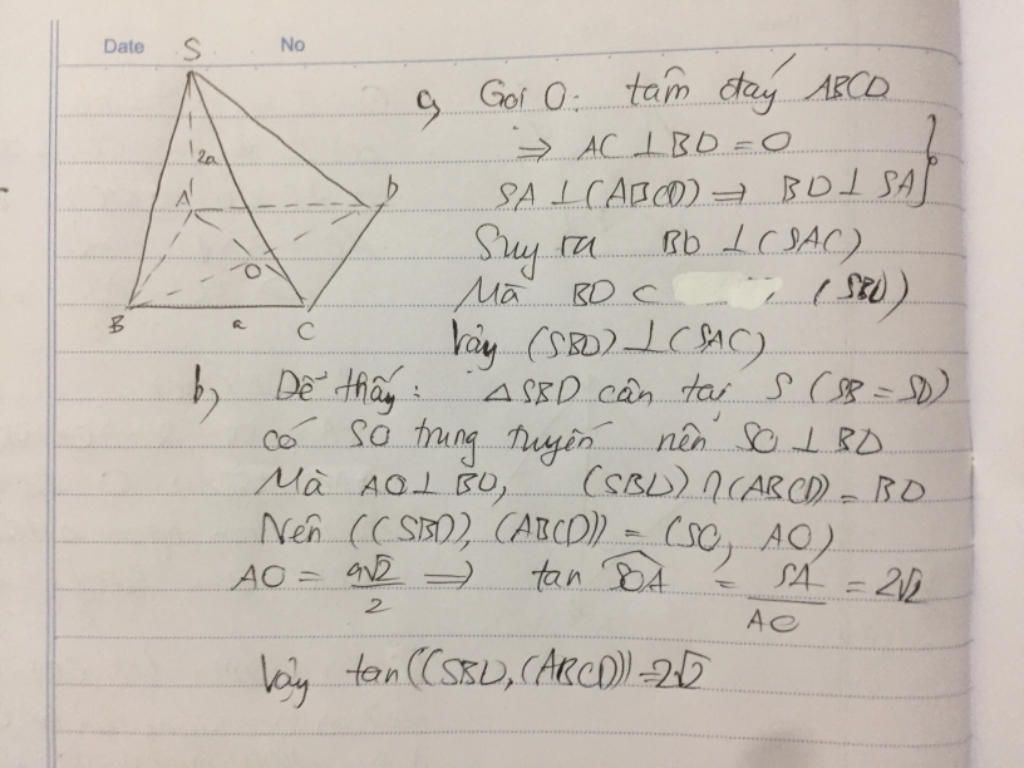 Date No
S
2a
A
D
O
B a C
a, Gọi O: tâm đáy ABCD
⇒ AC ⊥ BD = O
SA ⊥ (ABCD) ⇒ BD ⊥ SA
Suy ra BD ⊥ (SAC)
Mà BD ⊂ (SBD)
Vậy (SBD) ⊥ (SAC)
b, Dễ thấy: △SBD cân tại S (SB = SD)
có SO trung tuyến nên SO ⊥ BD
Mà AO ⊥ BD, (SBD) ∩ (ABCD) = BD
Nên ((SBD), (ABCD)) = (SO, AO)
AO = a√2/2 ⇒ tan SOA = SA/AO = 2√2
Vậy tan((SBD, (ABCD)) = 2√2